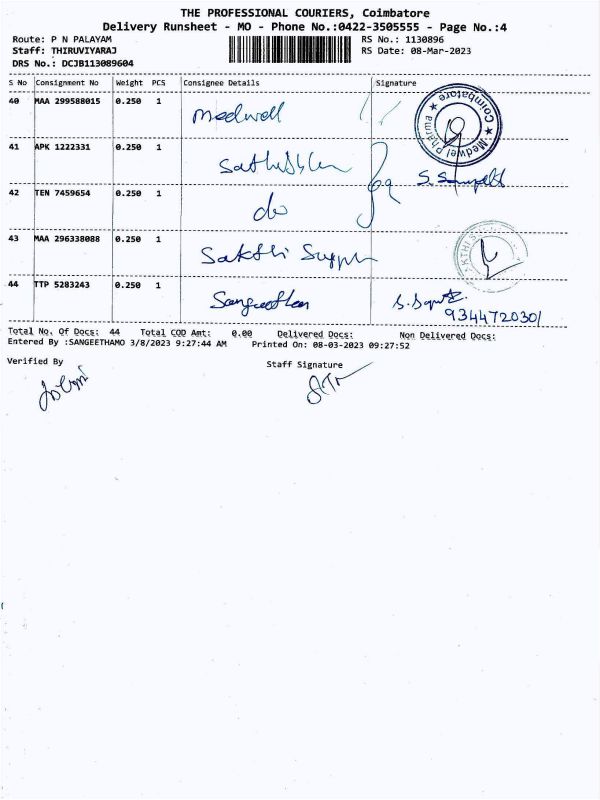 THE PROFESSIONAL COURIERS, Coimbatore
Delivery Runsheet - MO - Phone No.:0422-3505555 - Page No.:4
Route: P N PALAYAM RS No.: 1130896
Staff: THIRUVIYARAJ RS Date: 08-Mar-2023
DRS No.: DCJB113089604
S No Consignment No Weight PCS Consignee Details Signature
40 MAA 299588015 0.250 1 Medwell
Medwel Pharma Coimbatore
41 APK 1222331 0.250 1
42 TEN 7459654 0.250 1 do
43 MAA 296338088 0.250 1 Sakthi
44 TTP 5283243 0.250 1 Sangeetha
9344720301
Total No. Of Docs: 44 Total COD Amt: 0.00 Delivered Docs: Non Delivered Docs:
Entered By :SANGEETHAMO 3/8/2023 9:27:44 AM Printed On: 08-03-2023 09:27:52
Verified By Staff Signature